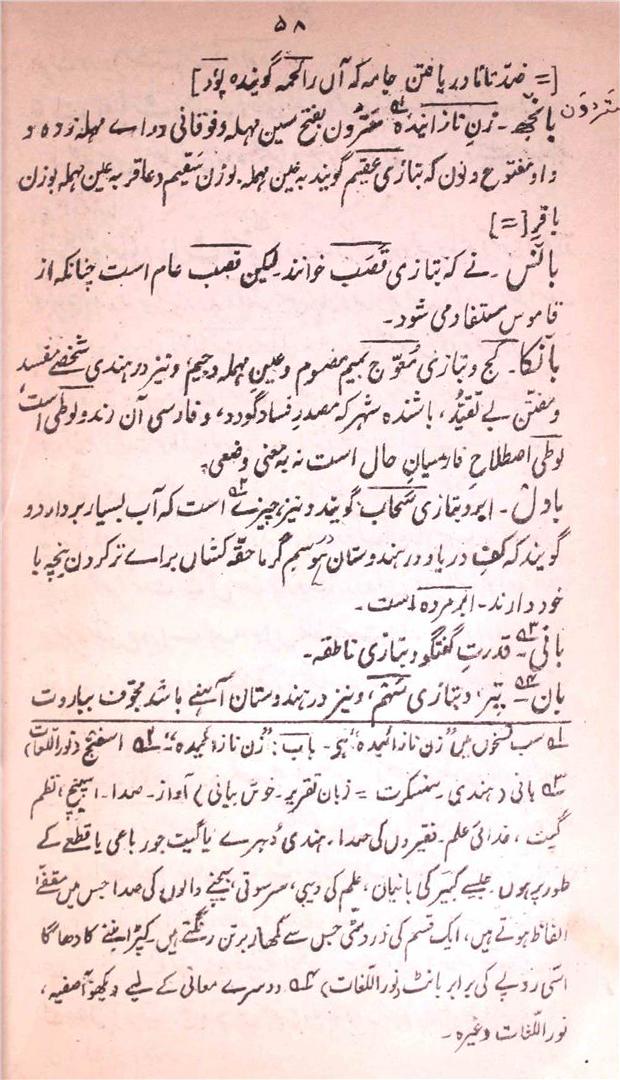 ۵۸
[= ضدّ تانا در یافتنِ جامہ کہ آں را لحمہ گویند و پود]
سَتَردَن
بانجھ۔ زنِ نازائیدہ لہ سَتَرون بفتح سین مہملہ و فوقانی و راے مہملہ زدہ و
واو مفتوح و نون کہ بتازی عقیم گویند بہ عین مہملہ بوزن سقیم و عاقر بہ عین مہملہ بوزن
باقر [=]
بانس۔ نے کہ بتازی قَصَب خوانند لیکن قصب عام است چنانکہ از
قاموس مستفاد می شود۔
بانکا۔ کج و بتازی مُعوّج بمیم مضموم و عین مہملہ و جیم، و نیز در ہندی شخصے مفسد
و مفتن بے تقیّد، باشندہ شہر کہ مصدر فساد گردد، و فارسی آن رند و لوطی است،
لوطی اصطلاح فارسیان حال است نہ بہ معنی وضعی۔
بادل۔ ابر و بتازی سَحاب گویند و نیز چیزے ۲؎ است کہ آب بسیار بردارد و
گویند کہ کف دریا و در ہندوستان موسم گرما حقّہ کشاں براے تر کردن نیچہ با
خود دارند۔ ابر مردہ است۔
بانی ۳؎۔ قدرتِ گفتگو و بتازی ناطقہ۔
بان ۴؎۔ تیر، و بتازی سَہْم، و نیز در ہندوستان آہنے باشد مجوّف بباروت
۱؎ سب نسخوں میں "زن نازائیدہ" ہی۔ باب: "زن نازائیدہ"۔ ۲؎ اسفنج (نوراللغات)
۳؎ بانی (ہندی۔ سنسکرت = زبان تقریر۔ خوش بیانی) آواز۔ صدا۔ اسپیچ، نظم
گیت، خدائی علم۔ فقیروں کی صدا۔ ہندی دُہرے یا گیت جو رباعی یا قطعے کے
طور پر ہوں۔ جیسے کبیر کی بانیاں، علم کی دیبی، سرسوتی، بیچنے والوں کی صدا جس میں مقفّا
الفاظ ہوتے ہیں، ایک قسم کی زرد مٹّی جس سے کمھار برتن رنگتے ہیں۔ کپڑا بننے کا دھاگا
اسّی روپے کی برابر بانٹ (نوراللّغات) ۴؎ دوسرے معانی کے لیے دیکھو آصفیہ،
نوراللّغات وغیرہ۔